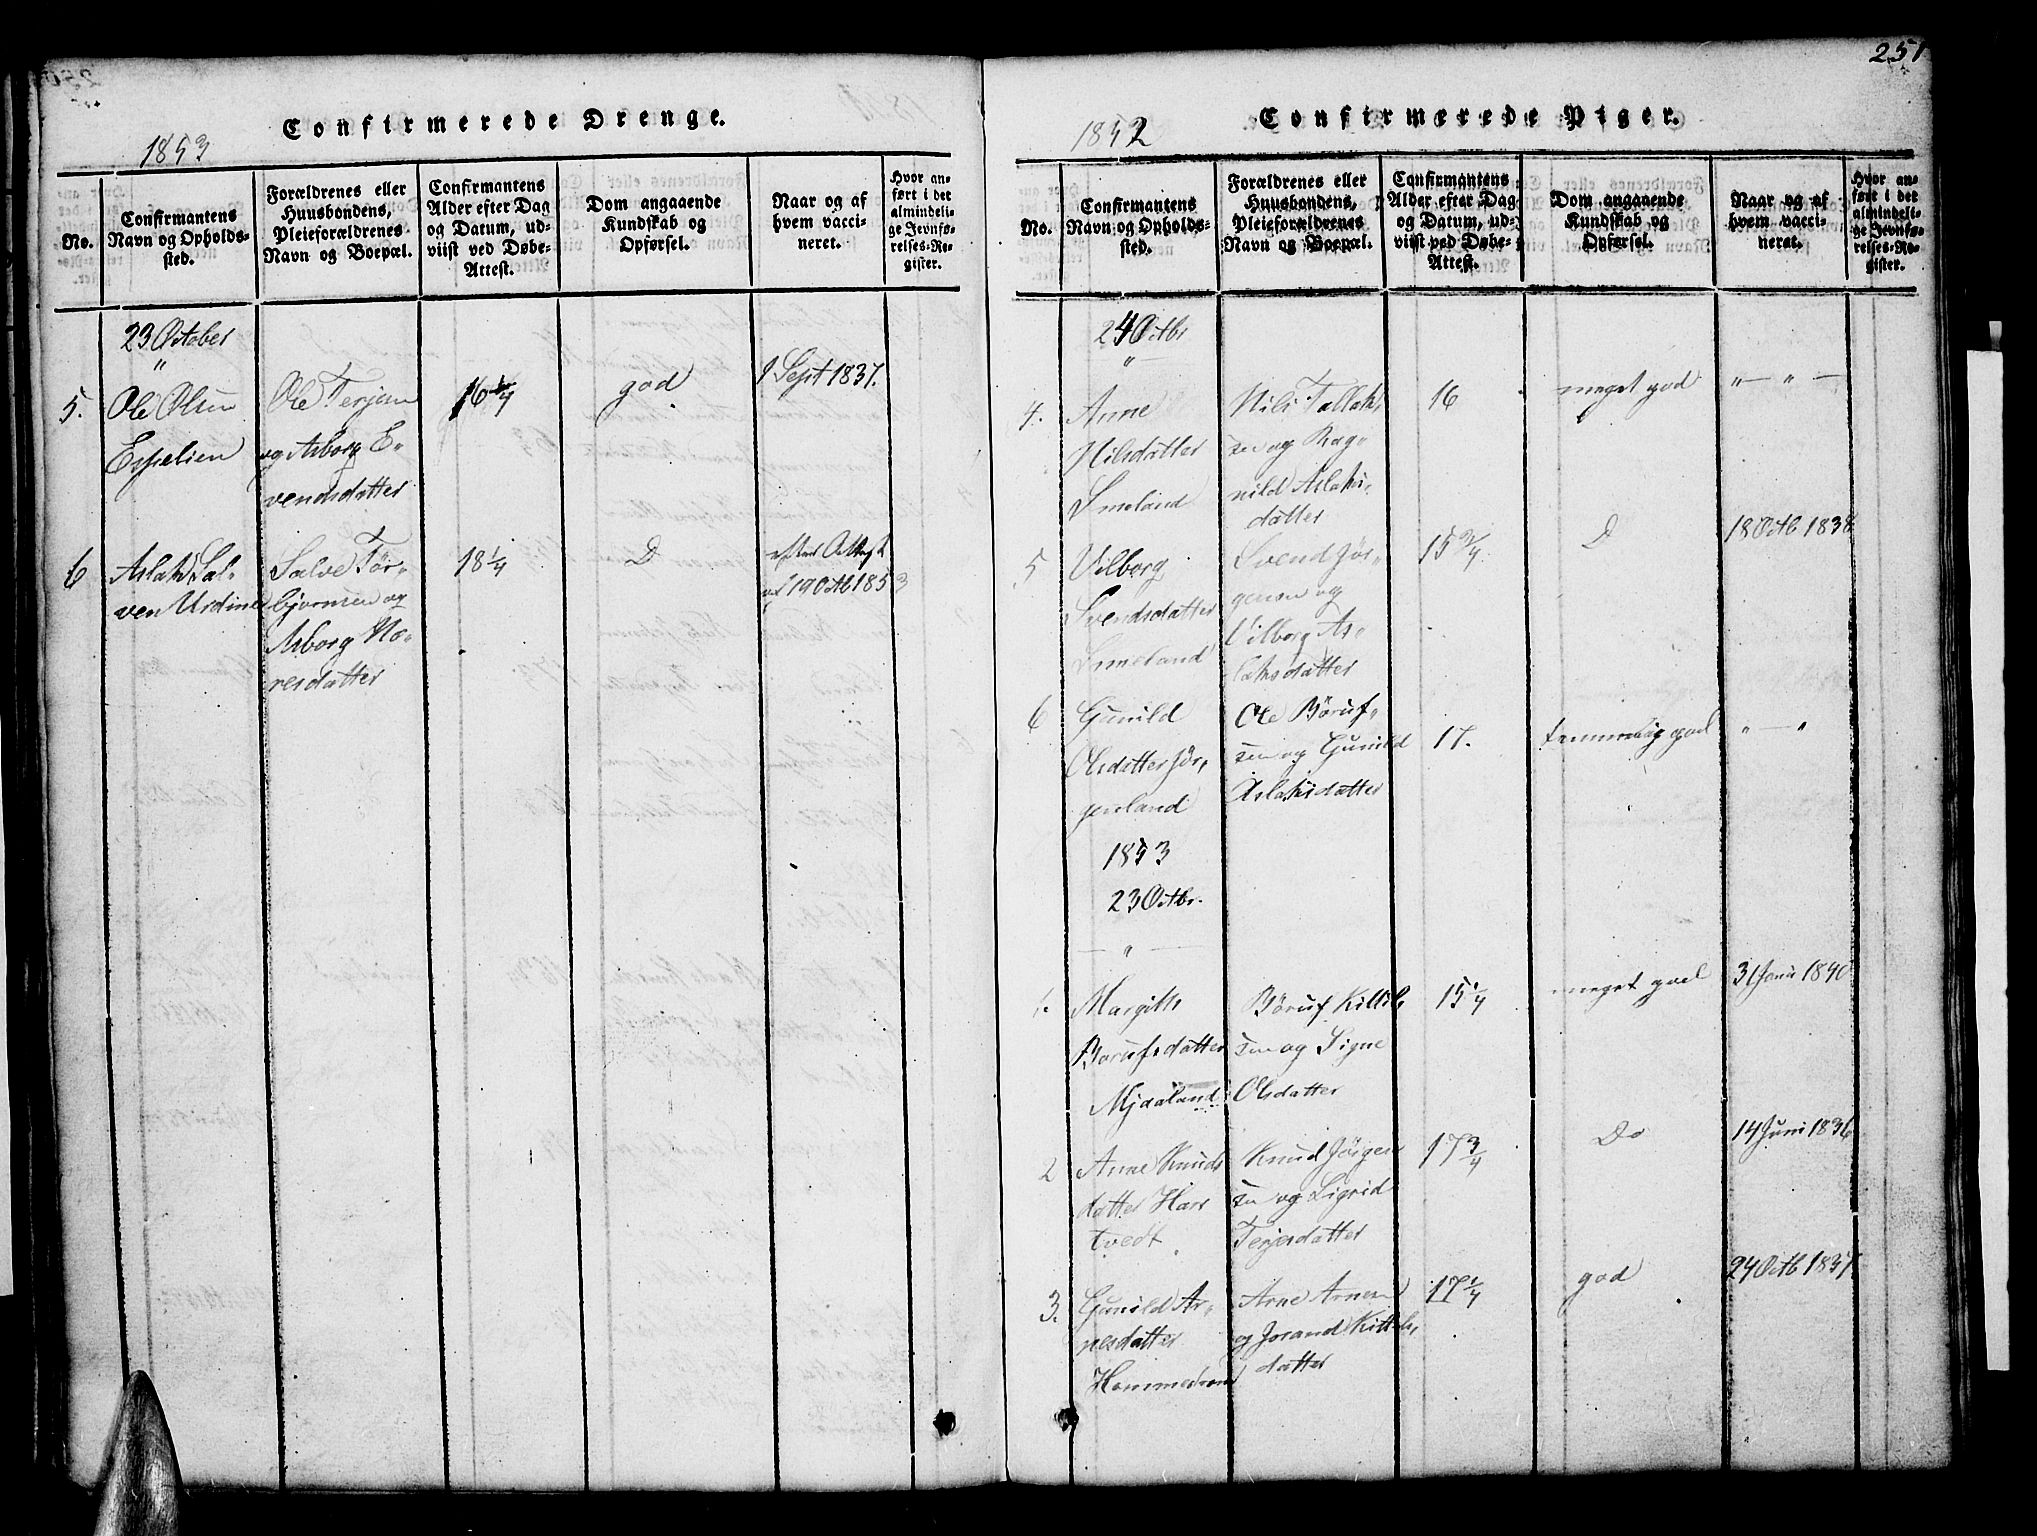 251
Confirmerede Drenge.
1853
No.
Confirmantens
Navn og Opholds-
sted.
Forældrenes eller
Huusbondens,
Pleieforældrenes
Navn og Boepæl.
Confirmantens
Alder efter Dag
og Datum, ud-
viist ved Døbe-
Attest.
Dom angaaende
Kundskab og
Opførsel.
Naar og af
hvem vacci-
neret.
Hvor an-
ført i det
almindeli-
ge Jevnfø-
relses-Re-
gister.
23 October
"
5.
Ole Olsen
Espelien
Ole Terjesen
og Asborg E-
vendsdatter
16 1/4
god
1 Sept 1837.
6
Aslak Sal-
ven Urdine
Salve Tor-
bjørnsen og
Asborg No-
resdatter
18 1/4
D
efter Attest
af 19 Octb 1853
Confirmerede Piger.
1852
No.
Confirmantens
Navn og Opholds-
sted.
Forældrenes eller
Huusbondens,
Pleieforældrenes
Navn og Boepæl.
Confirmantens
Alder efter Dag
og Datum, ud-
viist ved Døbe-
Attest.
Dom angaaende
Kundskab og
Opførsel.
Naar og af
hvem vacci-
neret.
Hvor an-
ført i det
almindeli-
ge Jevnfø-
relses-Re-
gister.
24 Octbr
"
4.
Anne
Nilsdatter
Smeland
Nils Tallak,
sen og Rag-
nild Aslaks-
datter
16
meget god
" — " —
5
Vilborg
Svendsdatter
Smeland
Svend Jør-
gensen og
Vilborg As-
laksdatter
15 3/4
D
18 Octb 1838
6
Gunild
Olsdatter Jør,
genland
Ole Böruf,
sen og Gunild
Aslaksdatter
17.
temmelig god
" — "
1853
23 Octbr.
— " —
1.
Margith
Borufsdatter
Mjaaland
Böruf Kittils,
sen og Signe
Olsdatter
15 1/4
meget god
3 Juni 1840
2
Anne Knuds
datter Hars
tvedt
Knud Jörgen
sen og Sigrid
Terjesdatter
17 3/4
Do
14 Juni 1836
3.
Gunild Ar-
nesdatter
Hommedrand
Arne Arnesen
og Jorand Kittels,
datter
17 1/4
god
24 Octb 1837.